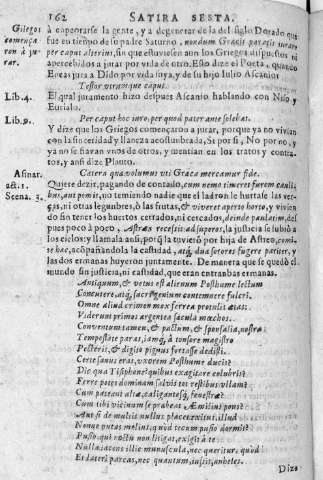 162 SATIRA SESTA.
Griegos
comença
ron à ju-
rar.
à caportarse la gente, y a degenerar de la del siglo Dorado que
fue en tiempo de su padre Saturno, nondum Græcis paratis iurare
per caput alterius, sin que estuviesen aun los Griegos dispuestos ni
apercebidos a jurar por vida de otro. Esto dize el Poeta, quando
Eneas jura a Dido por vida suya, y de su hijo Iulio Ascanio
Testor utrumque caput.
Lib. 4. El qual juramento hizo despues Ascanio hablando con Niso y
Eurialo.
Lib. 9. Per caput hoc iuro, per quod pater ante solebat.
Y dize que los Griegos començaron a jurar, porque ya no vivian
con la sinceridad y llaneza acostumbrada, Si por si, No por no, y
ya no se fiavan unos de otros, y mentian en los tratos y contra-
tos, y ansi dize Plauto.
Asinar. Cætera quæ volumus uti Græca mercamur fide.
act. 1.
Scena. 3.
Quiere dezir, pagando de contado, cum nemo timeret furem cauli-
bus, aut pomis, no temiendo nadie que el ladron le hurtase las ver-
ças, ni otras legumbres, ò las frutas, & viveret aperto horto, y vivien-
do sin tener los huertos cerrados, ni cercados, deinde paulatim, des
pues poco à poco, Astræa recessit ad superos, la justicia se subiò a
los cielos y llamala ansi, porq̃ la tuvierõ por hija de Astreo, comi-
te hac, acompañandola la castidad, atq; duæ sorores fugere pariter, y
las dos ermanas huyeron juntamente. De manera que se quedò el
mundo sin justicia, ni castidad, que eran entranbas ermanas.
Antiquum, & vetus est alienum Posthume lectum
Concutere, atq; sacri genium contemnere fulcri.
Omne aliud crimen mox ferrea protulit ætas:
Viderunt primos argentea sæcula mœchos.
Conventum tamen, & pactum, & sponsalia, nostra
Tempestate paras, iamq; à tonsore magistro
Pecteris, & digito pignus fortasse dedisti.
Certe sanus eras, uxorem Posthume ducis?
Dic qua Tisiphone? quibus exagitere colubris?
Ferre potes dominam salvis tot restibus ullam?
Cum pateant altæ, caligantesq́; fenestræ?
Cum tibi vicinum se præbeat Æmilius pons?
Aut si de multis nullus placet exitus, illud
Nonne putas melius, quòd tecum pusio dormit?
Pusio, qui noctu non litigat, exigit à te
Nulla iacens illic munuscula, nec queritur, quòd
Et lateri parcas, nec quantum iussit, anheles.
Dize